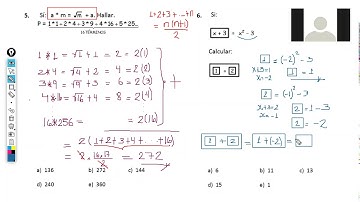 5. Si: a * m = √m + a. Hallar.
P = 1*1 + 2*4 + 3*9 + 4*16 + 5*25...
16 TÉRMINOS
1+2+3+...+n
= n(n+1)
2
1*1 = √1 + 1 = 2 = 2(1)
2*4 = √4 + 2 = 4 = 2(2)
3*9 = √9 + 3 = 6 = 2(3)
4*16 = √16 + 4 = 8 = 2(4)
+
16*256 = = 2(16)
= 2(1+2+3+4+...+16)
= 2. 16.17
2
= 272
a) 136 b) 272 c) 144
d) 240 e) 360
6. Si:
x + 3 = x² - 3
Calcular:
1 + 2
1 = (-2)² - 3
x+3=1
x=-2
2 = (-1)² - 3
x+3=2
x=-1
2 = 1-3
2 = -2
1 + 2 = 1+(-2) =
a) 6 b) 11 c) 13
d) 15 e) 1